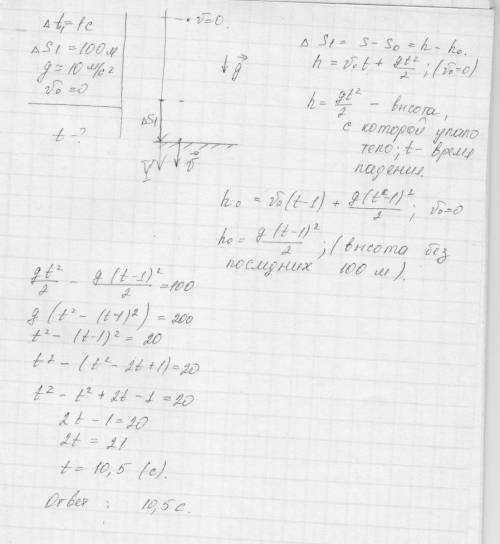 Δt₁=1c
ΔS1 = 100 м
g = 10 м/с²
v₀ = 0
t - ?
v=0.
g
ΔS1
v
Y
Δ S1 = S - S₀ = h - h₀.
h = v₀t + gt²/2 ; (v₀=0)
h = gt²/2 - высота,
с которой упало
тело; t - время
падения.
h₀ = v₀(t-1) + g(t-1)²/2 ; v₀=0
h₀ = g(t-1)²/2 ; (высота без
последних 100 м).
gt²/2 - g(t-1)²/2 = 100
g (t² - (t-1)²) = 200
t² - (t-1)² = 20
t² - (t² - 2t+1) = 20
t² - t² + 2t - 1 = 20
2t - 1 = 20
2t = 21
t = 10,5 (с).
Ответ : 10,5 с.